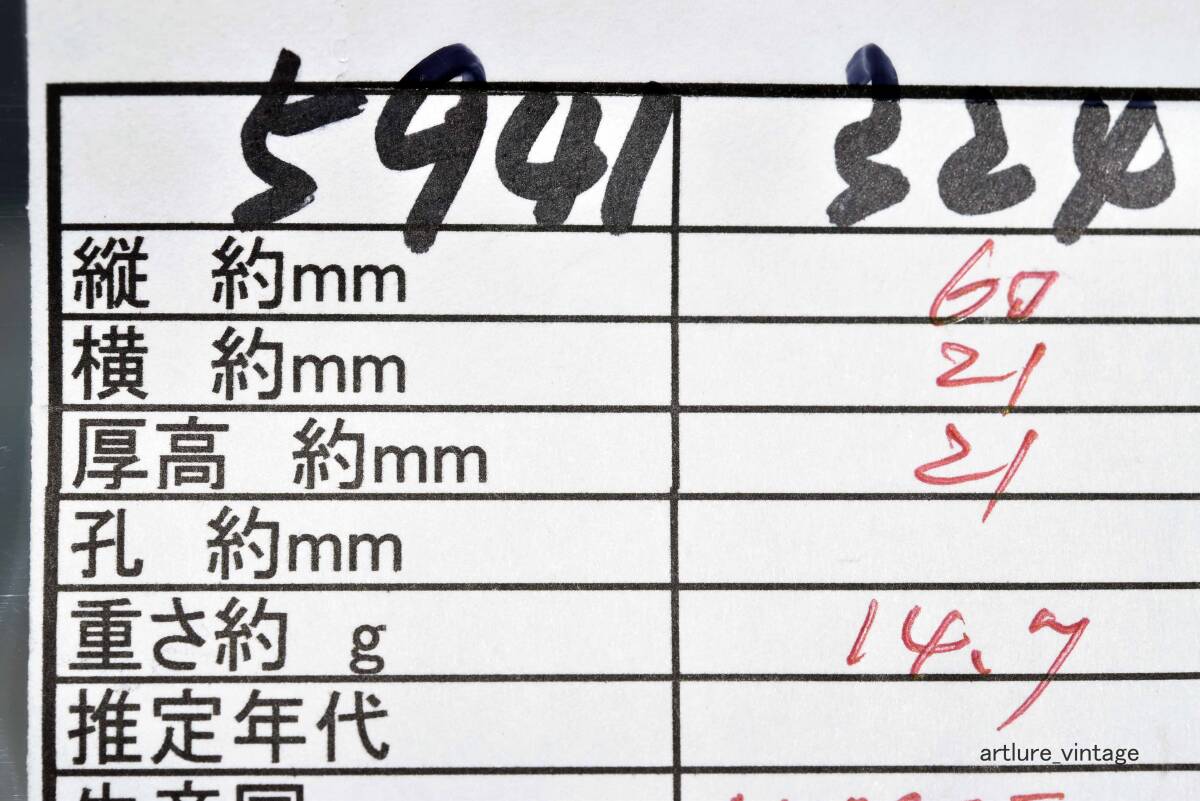 5941 324
縦 約mm 60
横 約mm 21
厚高 約mm 21
孔 約mm
重さ約 g 14.7
推定年代
artlure_vintage